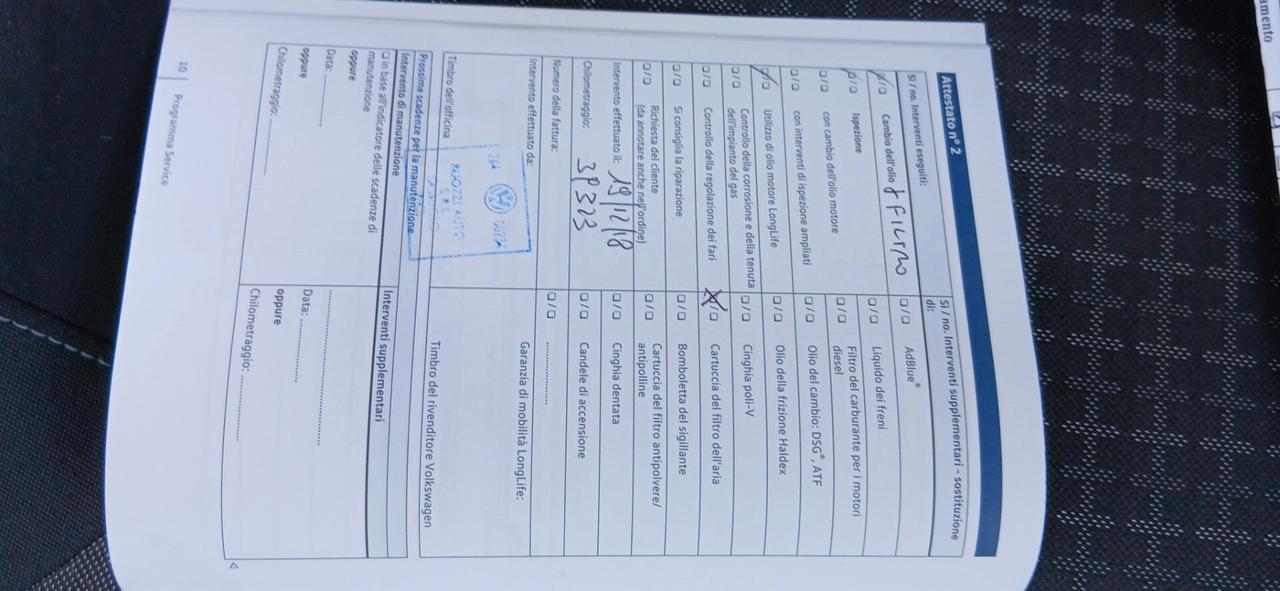 amento
Attestato nº 2
Sì / no. Interventi eseguiti:
Cambio dell'olio + FILTRO
Ispezione
con cambio dell'olio motore
con interventi di ispezione ampliati
Utilizzo di olio motore LongLife
Controllo della corrosione e della tenuta
dell'impianto del gas
Controllo della regolazione dei fari
Si consiglia la riparazione
Richiesta del cliente
(da annotare anche nell'ordine)
Intervento effettuato il: 19/12/18
Chilometraggio: 39323
Numero della fattura:
Intervento effettuato da:
Timbro dell'officina
Sì / no. Interventi supplementari - sostituzione
di:
AdBlue®
Liquido dei freni
Filtro del carburante per i motori
diesel
Olio del cambio: DSG®, ATF
Olio della frizione Haldex
Cinghia poli-V
Cartuccia del filtro dell'aria
Bomboletta del sigillante
Cartuccia del filtro antipolvere/
antipolline
Cinghia dentata
Candele di accensione
....................
Garanzia di mobilità LongLife:
Timbro del rivenditore Volkswagen
AUTO
Prossime scadenze per la manutenzione
Intervento di manutenzione
in base all'indicatore delle scadenze di
manutenzione
oppure
Data: ....................
oppure
Chilometraggio: ....................
Interventi supplementari
..................................................
Data: ....................
oppure
Chilometraggio: ....................
10 | Programma Service